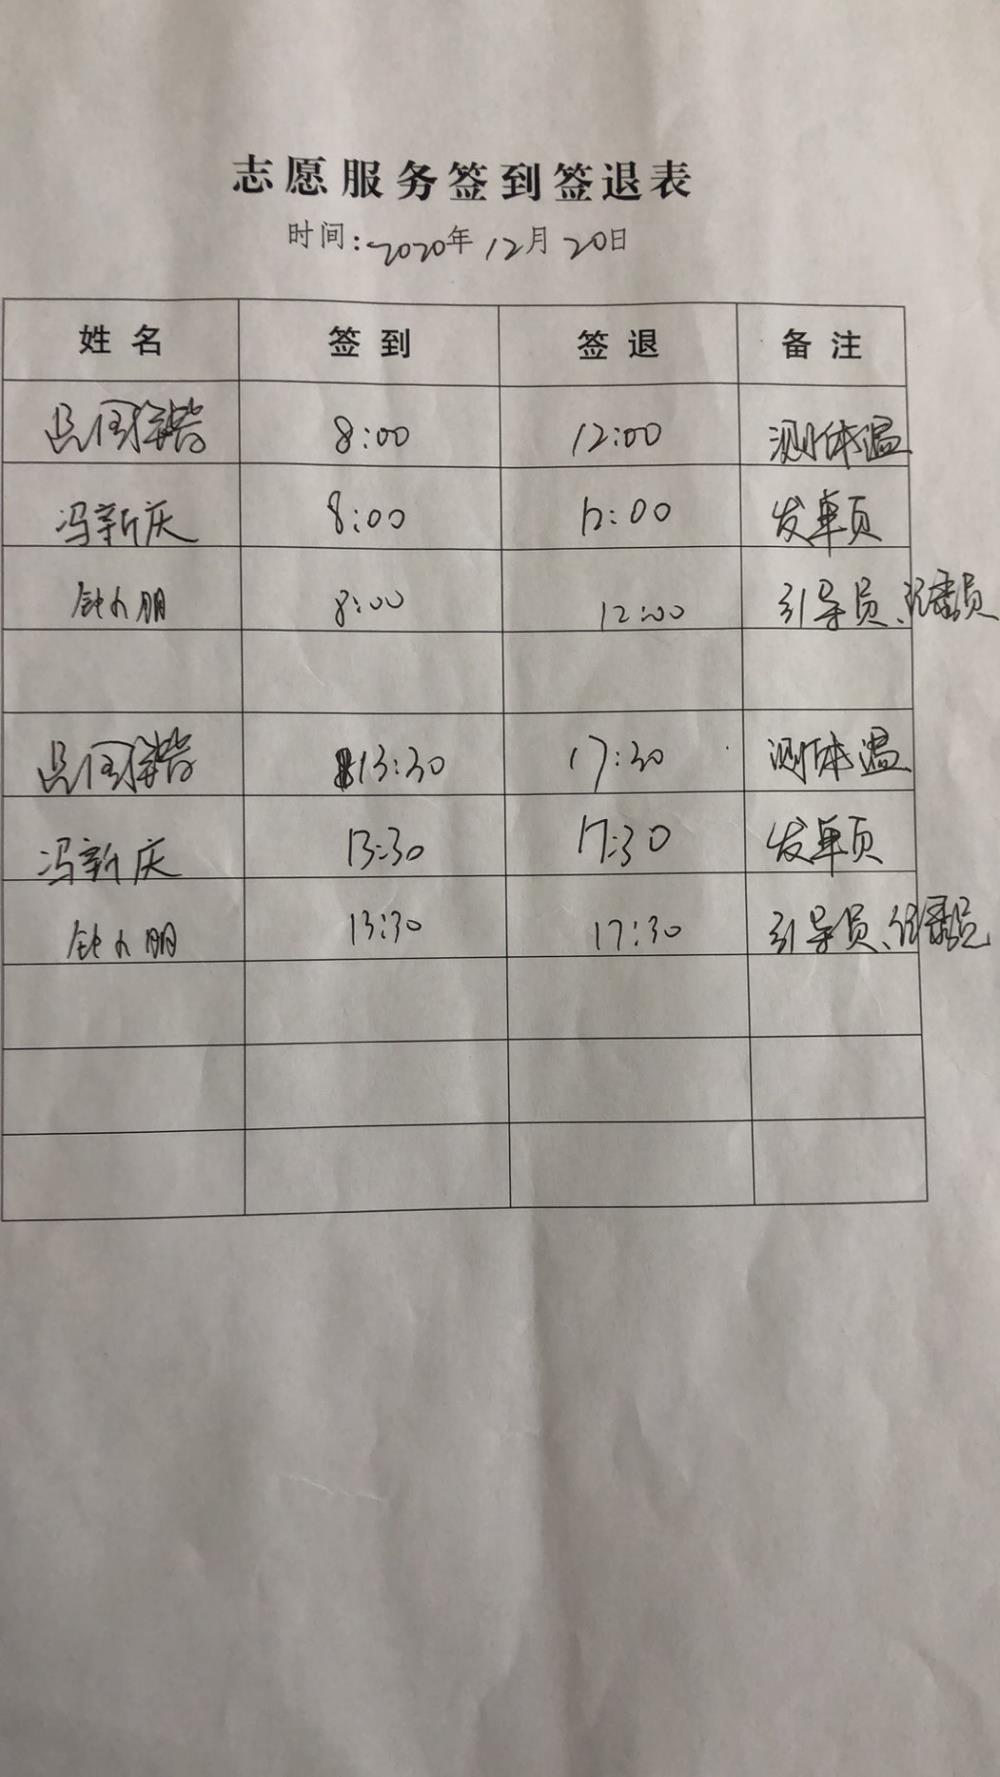 志愿服务签到签退表
时间:2020年12月20日
姓名 签到 签退 备注
8:00 12:00 测体温
冯新庆 8:00 12:00 发单页
8:00 12:00 引导员、
13:30 17:30 测体温
冯新庆 13:30 17:30 发单页
13:30 17:30 引导员、